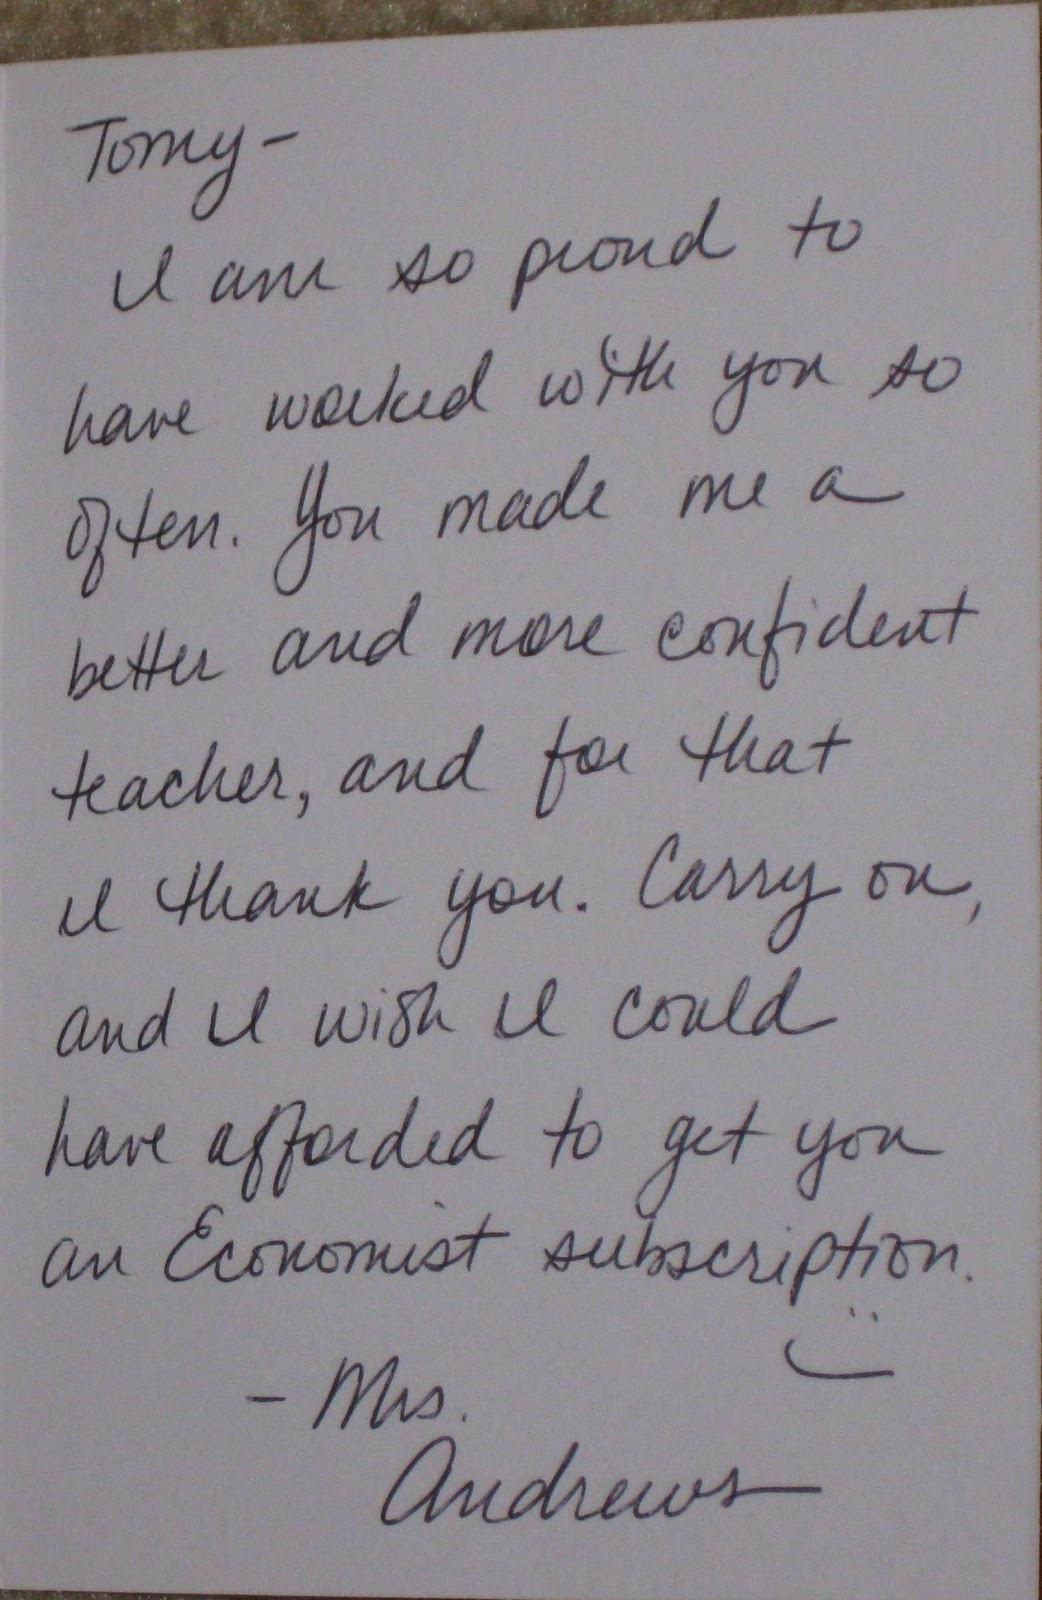 Tomy -
I am so proud to
have worked with you so
often. You made me a
better and more confident
teacher, and for that
I thank you. Carry on,
and I wish I could
have afforded to get you
an Economist subscription.
- Mrs.
Andrews